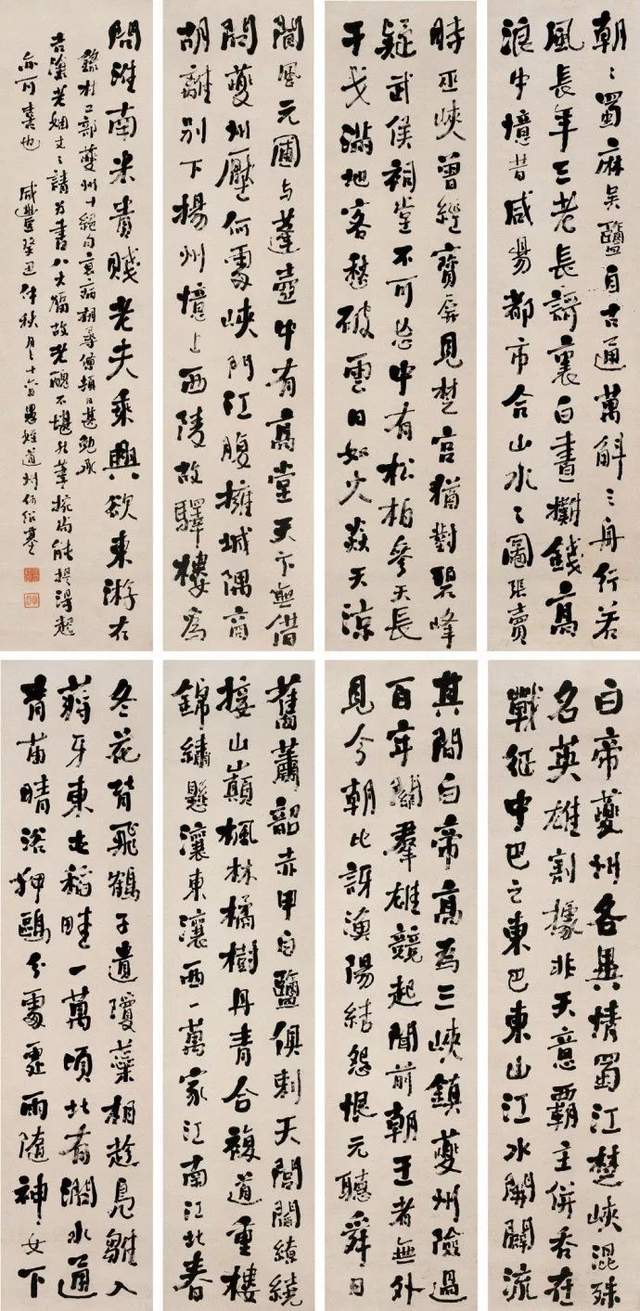 白帝夔州各異情蜀江楚峽混殊
名英雄割據非天意霸主併吞在
戰征中巴之東巴東山江水開闢流
其間白帝高為三峽鎮夔州險過
百牢關羣雄競起聞前朝王者無外
見今朝比訝漁陽結怨恨元聽舜日
舊簫韶赤甲白鹽俱刺天閭閻繚繞
接山巔楓林橘樹丹青合複道重樓
錦繡懸瀼東瀼西一萬家江南江北春
冬花背飛鶴子遺瓊蕊相趁鳧雛入
蔣牙東屯稻畦一萬頃北有澗水通
青苗晴浴狎鷗分處處雨隨神女下
朝〻蜀麻吳鹽自古通萬斛之舟行若
風長年三老長謌裏白晝攤錢高
浪中憶昔咸陽都市合山水之圖張賣
時巫峽曾經寶屏見楚宮猶對碧峰
疑武侯祠堂不可忘中有松柏參天長
干戈滿地客愁破雲日如火炎天涼
閬風元圃與蓬壺中有高堂天下無借
問夔州壓何處峽門江腹擁城隅商
胡離別下揚州憶上西陵故驛樓為
問淮南米貴賤老夫乘興欲東游右
錄杜工部夔州十絕句
老姻丈請為書八大篇故老醜不堪
亦可喜也 咸豐癸丑仲秋月十六日愚姪道州何紹基